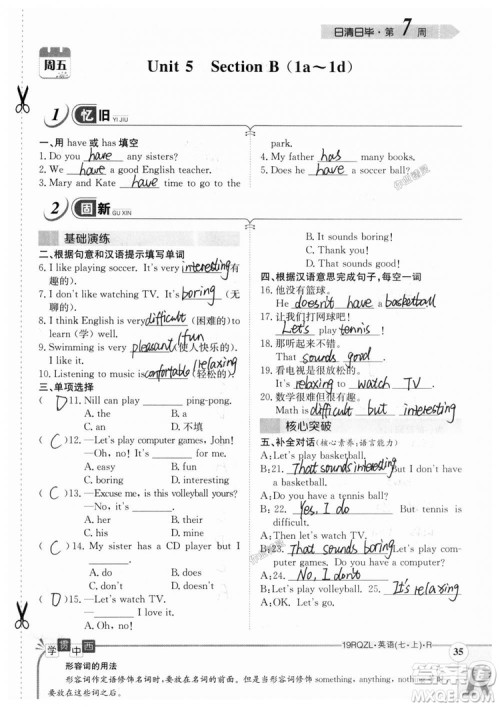 日清日毕·第7周
周五
Unit 5 Section B（1a～1d）
1 忆旧 YI JIU
一、用 have 或 has 填空
1. Do you have any sisters?
2. We have a good English teacher.
3. Mary and Kate have time to go to the park.
4. My father has many books.
5. Does he have a soccer ball?
2 固新 GU XIN
基础演练
二、根据句意和汉语提示填写单词
6. I like playing soccer. It's very interesting (有趣的).
7. I don't like watching TV. It's boring (无聊的).
8. I think English is very difficult (困难的) to learn (学) well.
9. Swimming is very pleasant/fun (使人快乐的).
10. Listening to music is comfortable/relaxing (轻松的).
三、单项选择
( D )11. Nill can play ping-pong.
A. the B. a
C. an D. 不填
( C )12. —Let's play computer games, John!
—Oh, no!
A. easy B. fun
C. boring D. interesting
( )13. —Excuse me, is this volleyball yours?
A. her B. hers
C. his D. mine
( C )14. My sister has a CD player but she
A. do B. does
C. doesn't D. don't
( )15. —Let's watch TV.
—Oh, no!
A. It's interesting.
B. It sounds boring!
C. Thank you!
D. That sounds good!
四、根据汉语意思完成句子,每空一词
16. 他没有篮球。
He doesn't have a basketball
17. 让我们打网球吧!
Let's play tennis!
18. 那听起来不错。
That sounds good.
19. 看电视是很放松的。
It's relaxing to watch TV.
20. 数学很难但很有趣。
Math is difficult but interesting
核心突破
五、补全对话(核心素养:语言能力)
A: Let's play basketball.
B: 21. That sounds interesting
a basketball.
A: Do you have a tennis ball?
B: 22. Yes, I do But tennis is difficult.
A: Let's play computer games.
B: 24. That sounds boring
A: Let's play volleyball. 25. It's relaxing
A: OK. Let's go.
学贯中西
19RQZL·英语(七·上)·R
35
形容词的用法